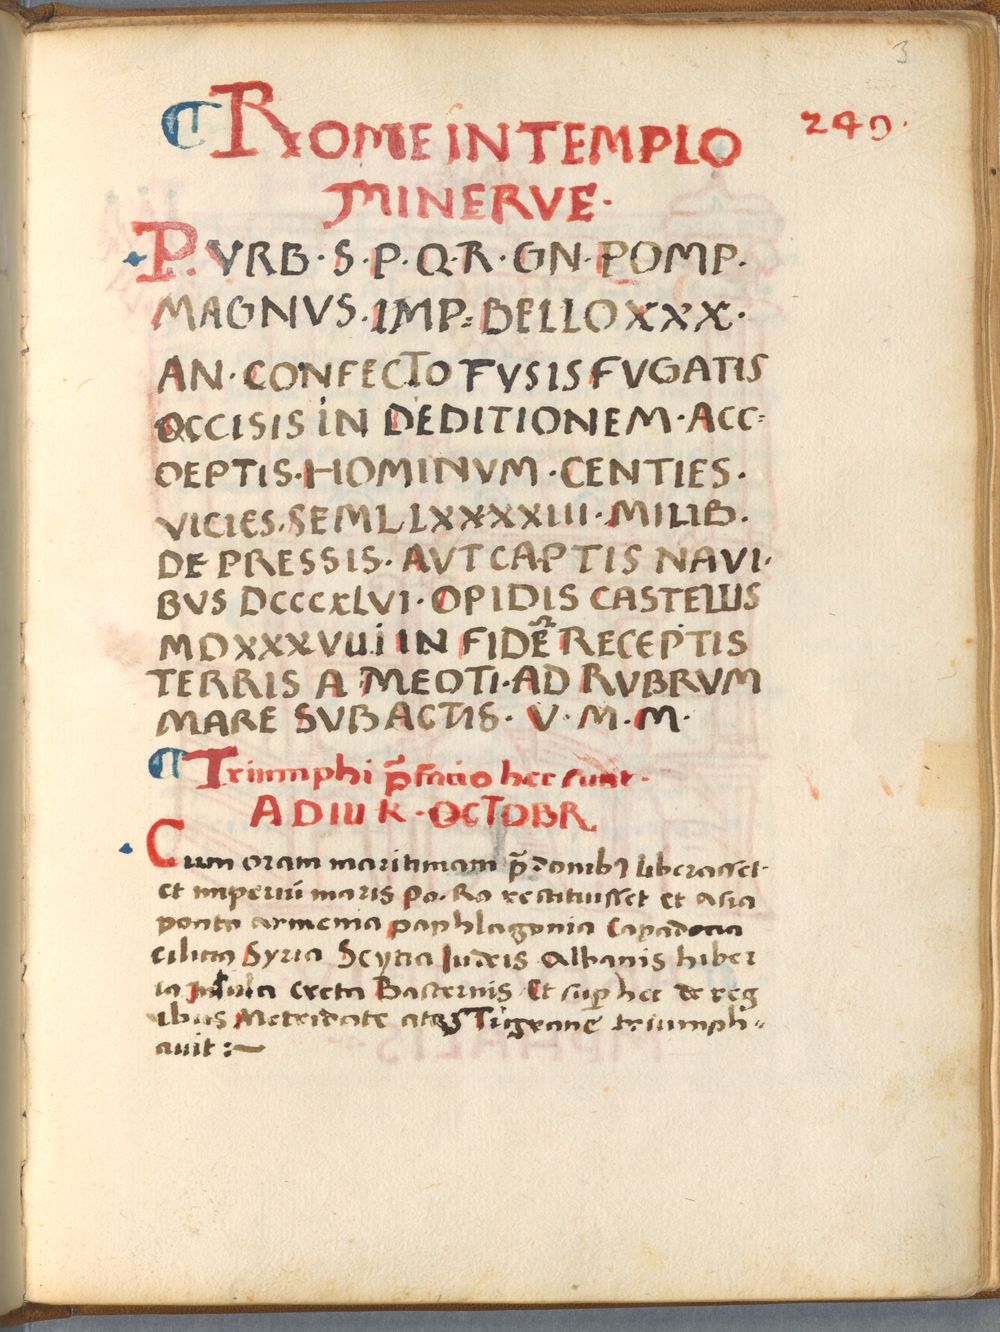 3
249.
¶ ROME IN TEMPLO
MINERVE·
P. VRB·S·P·Q·R·GN·POMP·
MAGNVS·IMP= BELLO XXX·
AN·CONFECTO FVSIS FVGATIS
OCCISIS IN DEDITIONEM·ACC=
OEPTIS·HOMINVM·CENTIES·
VICIES·SEMLLXXXXIII·MILIB·
DE PRESSIS·AVT CAPTIS NAVI·
BVS DCCCXLVI·OPIDIS CASTELLIS
MDXXXVIII IN FIDẼ RECEPTIS
TERRIS A MEOTI·AD RVBRVM
MARE SVBACTIS·V·M·M·
¶ Triumphi p̃facio hec sunt·
AD III K·OCTOBR
Cum oram maritimam p̃donibꝰ liberasset·
et imperiũ maris Po. Ro restituisset et asia
ponto armenia paphlagonia Capadocia
cilicia Syria Scytia Judeis Albanis hiber
ia Insula Creta Basternis Et sup hec de reg
ibus Metridate atqꝫ Tigrane triumph=
auit :~